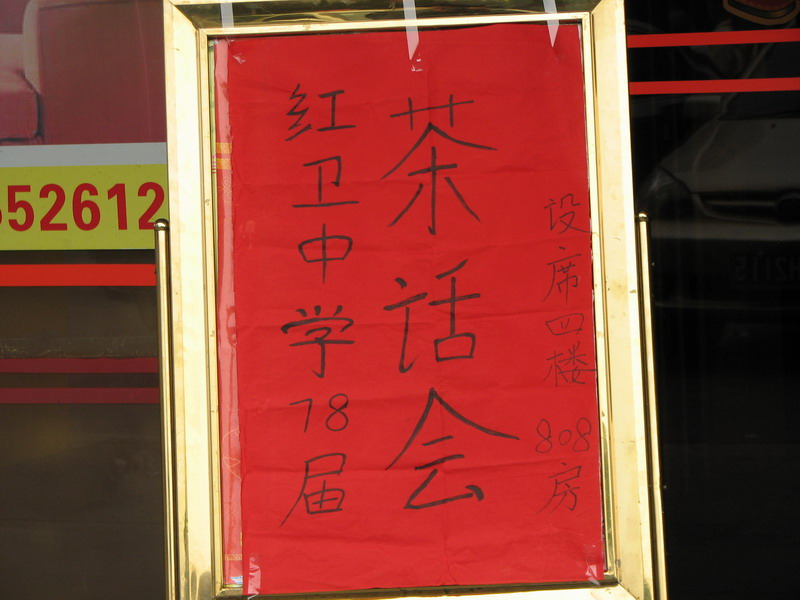 红卫中学78届
茶话会
设席四楼 808房
52612